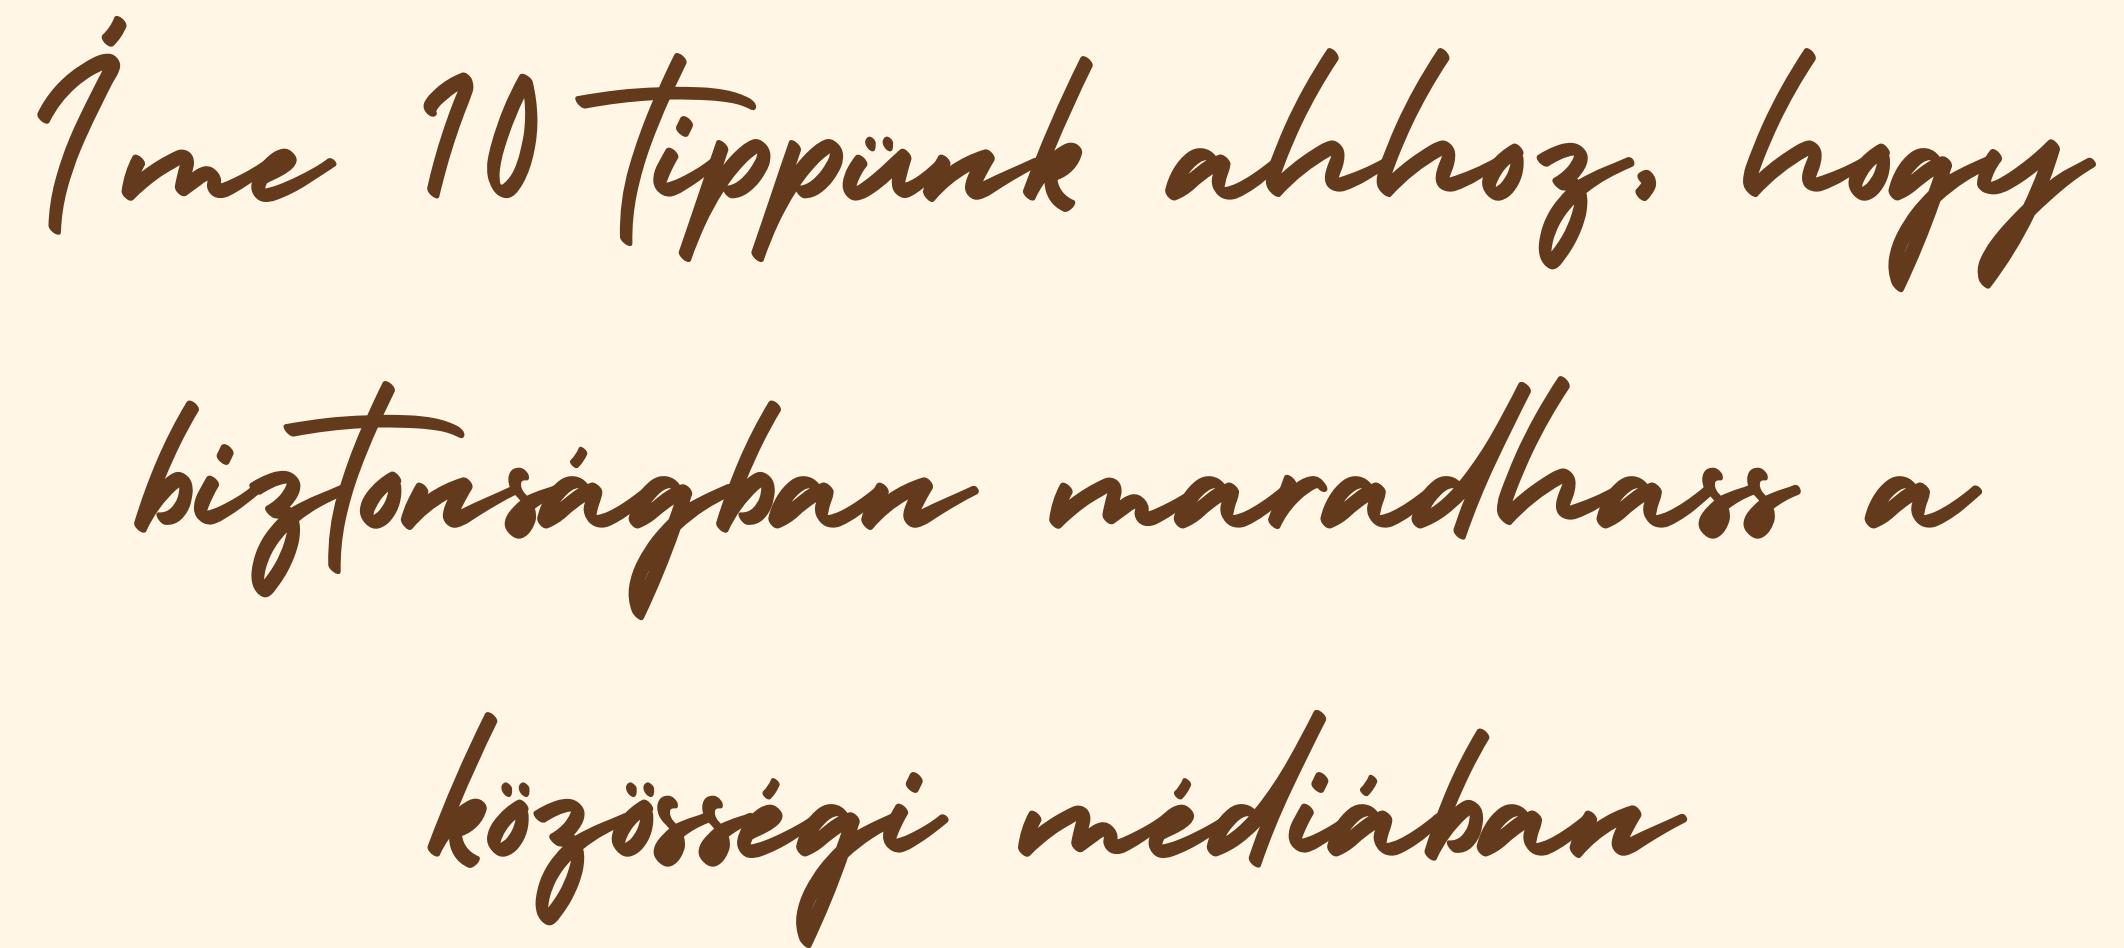 Íme 10 tippünk ahhoz, hogy
biztonságban maradhass a
közösségi médiában